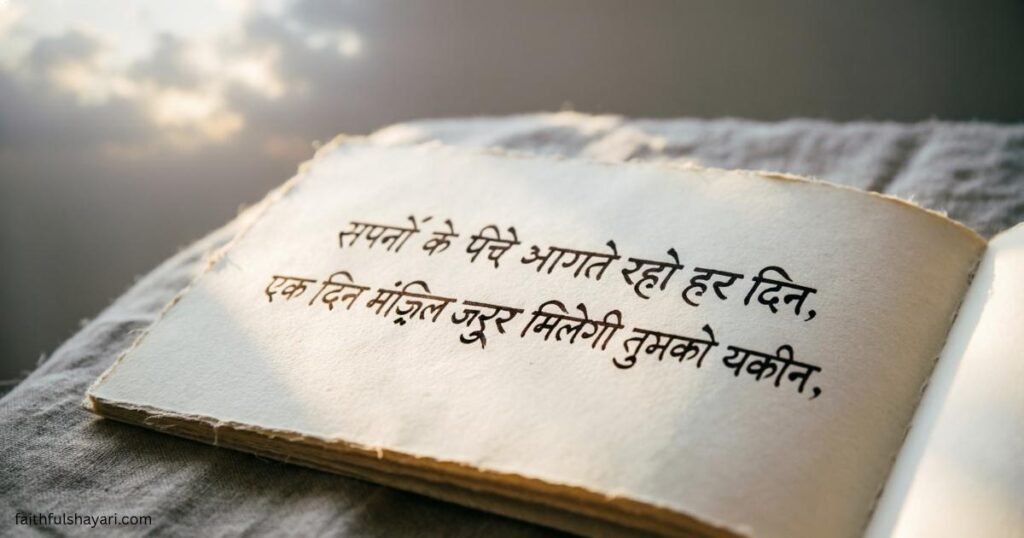 सपनों के पीचे आगते रहो हर दिन,
एक दिन मंज़िल जरूर मिलेगी तुमको यकीन,
faithfulshayari.com